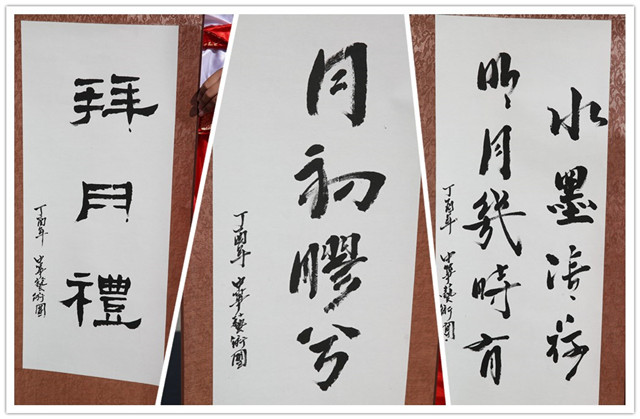 拜月禮
丁酉年 中華藝術園
月初膠兮
丁酉年 中華藝術園
水墨
明月幾時有
丁酉年 中華藝術園